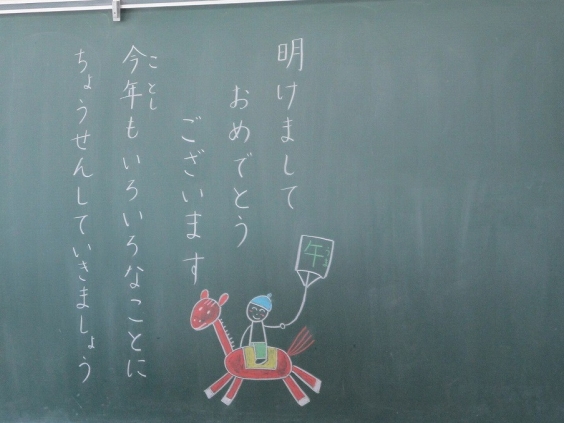 明けまして
おめでとう
ございます
今年もいろいろなことに
ことし
ちょうせんしていきましょう
午